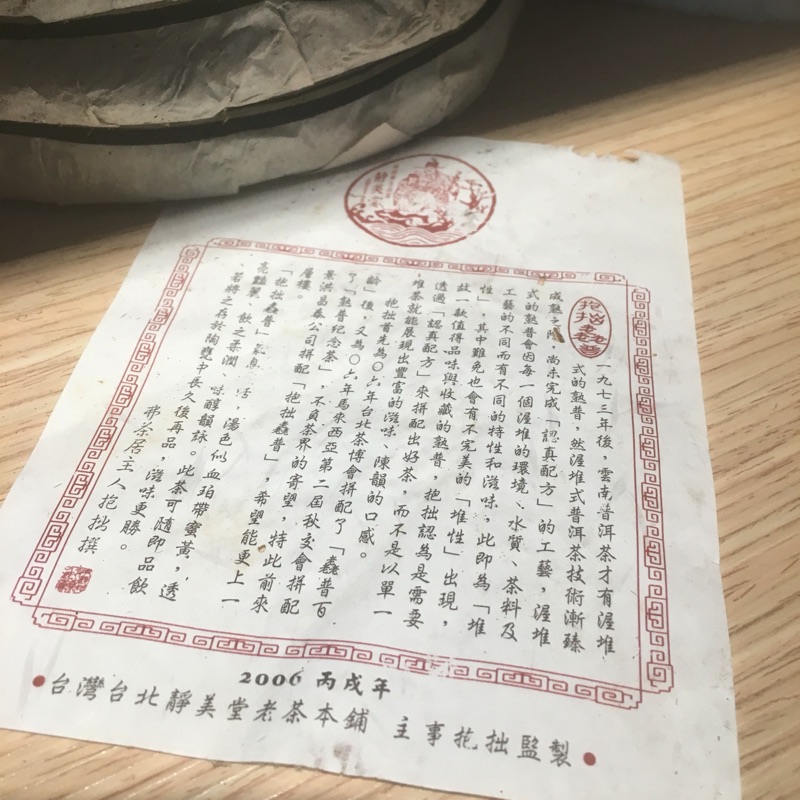 抱拙蠢普
一九七三年後，雲南普洱茶才有渥堆
式的熟普，然渥堆式普洱茶技術漸臻
成熟之際，尚未完成「認真配方」的工藝，渥堆
式的熟普會因每一個渥堆的環境、水質、茶料及
工藝的不同而有不同的特性和滋味，此即為「堆
性」，其中難免也會有不完美的「堆性」出現，
故一款值得品味與收藏的熟普，抱拙認為是需要
透過「認真配方」來拼配出好茶，而不是以單一
堆茶就能展現出豐富的滋味、陳韻的口感。
抱拙首先為〇六年台北茶博會拼配了「蠢普百
齡」後，又為〇六年馬來西亞第二屆秋交會拼配
了「熟普紀念茶」，不負茶界的寄望，特此前來
景洪昌泰公司拼配「抱拙蠢普」，希望能更上一
層樓。
「抱拙蠢普」氣息 活，湯色似血珀帶蜜黃，透
亮豔麗，飲之柔潤、味醇韻詠。此茶可隨即品飲
若將之存於陶甕中長久後再品，滋味更勝。
茶居主人抱拙撰
2006 丙戌年
台灣台北靜美堂老茶本鋪 主事抱拙監製